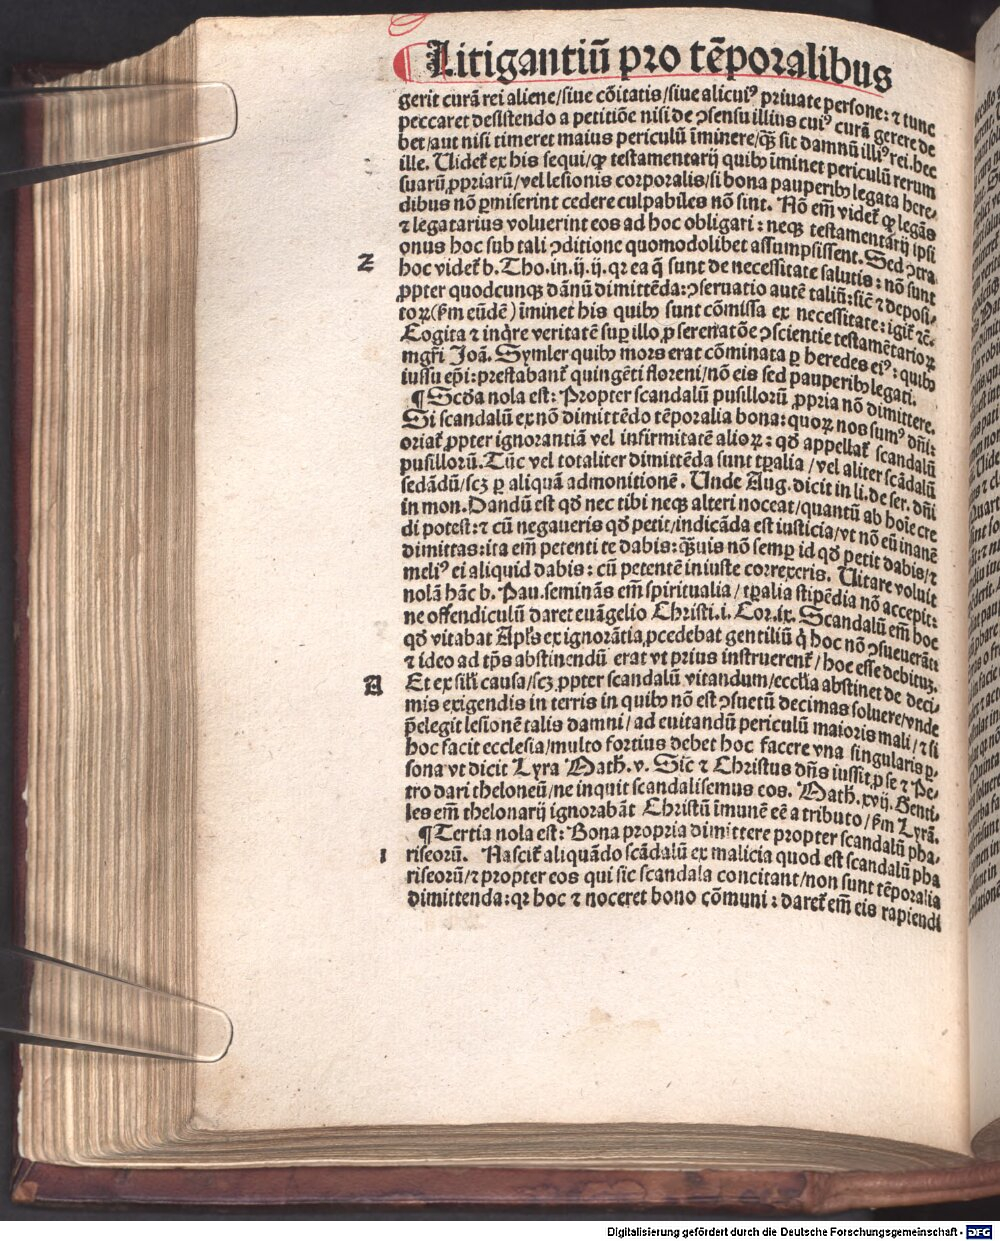 ¶ Litigantiū pro tēporalibus
gerit curā rei aliene/siue cōitatis/siue alicuiꝰ priuate persone: ⁊ tunc
peccaret desistendo a petitiōe nisi de ↄsensu illius cuiꝰ curā gerere de
bet/aut nisi timeret maius periculū īminere/ꝙ̄ sit damnū illiꝰ rei. hec
ille. Uidet̄ ex his sequi/ꝙ testamentarij quibꝫ īminet periculū rerum
suarū ꝓpriarū/vel lesionis corporalis/si bona pauperibꝫ legata here⸗
dibus nō ꝑmiserint cedere culpabiles nō sint. Nō em̄ videt̄ ꝙ legās
⁊ legatarius voluerint eos ad hoc obligari: neqꝫ testamentarij ipsi
onus hoc sub tali ↄditione quomodolibet assumpsissent. Sed ↄtra
Z
hoc videt̄ b. Tho. in. ij. ij. qꝛ ea q̄ sunt de necessitate salutis: nō sunt
ꝓpter quodcunqꝫ dānū dimittēda: ↄseruatio autē taliū: sic̄ ⁊ deposi⸗
toꝝ (ẜm eūdē) īminet his quibꝫ sunt cōmissa ex necessitate: igit̄ ⁊c̄.
Cogita ⁊ inq̇re veritatē suꝑ illo ꝓ serenatōe ↄscientie testamētarioꝝ
mgr̄i Joā. Symler quibꝫ mors erat cōminata ꝑ heredes eiꝰ: quibꝫ
iussu ep̄i: prestabant̄ quingēti floreni/nō eis sed pauperibꝫ legati.
¶ Scd̄a nola est: Propter scandalū pusillorū ꝓpria nō dimittere.
Si scandalū ex nō dimittēdo tēporalia bona: quoꝝ nos sumꝰ dn̄i:
oriat̄ ꝓpter ignorantiā vel infirmitatē alioꝝ: qd̄ appellat̄ scandalū
pusillorū. Tūc vel totaliter dimittēda sunt tꝑalia / vel aliter scādalū
sedādū/scꝫ ꝑ aliquā admonitionē. Unde Aug. dicit in li. de ser. dn̄i
in mon. Dandū est qd̄ nec tibi neqꝫ alteri noceat/quantū ab hoīe cre
di potest: ⁊ cū negaueris qd̄ petit/indicāda est iusticia/vt nō eū inanē
dimittas: ita em̄ petenti te dabis: ꝙ̄uis nō semꝑ id qd̄ petit dabis/⁊
meliꝰ ei aliquid dabis: cū petentē iniuste correxeris. Uitare voluit
nolā hāc b. Pau. seminās em̄ spiritualia / tꝑalia stipēdia nō accepit:
ne offendiculū daret euāgelio Christi. i. Cor. ix. Scandalū em̄ hoc
qd̄ vitabat Apl̄s ex ignorātia ꝓcedebat gentiliū q̇ hoc nō ↄsueuerāt:
⁊ ideo ad tp̄s abstinendū erat vt prius instruerent̄ / hoc esse debitum.
A
Et ex sil̄i causa/scꝫ ꝓpter scandalū vitandum/eccl̄ia abstinet de deci⸗
mis exigendis in terris in quibꝫ nō est ↄsuetū decimas soluere/vnde
p̄elegit lesionē talis damni / ad euitandū periculū maioris mali / ⁊ si
hoc facit ecclesia/multo fortius debet hoc facere vna singularis ꝑ⸗
sona vt dicit Lyra Math. v. Sic̄ ⁊ Christus dn̄s iussit ꝓ se ⁊ Pe⸗
tro dari theloneū/ne inquit scandalisemus eos. Math. xvij. Genti⸗
les em̄ thelonarij ignorabāt Christū īmunē eē a tributo / ẜm Lyrā.
¶ Tertia nola est: Bona propria dimittere propter scandalū pha⸗
1
riseorū. Nascit̄ aliquādo scādalū ex malicia quod est scandalū pha
riseorū/⁊ propter eos qui sic scandala concitant/non sunt tēporalia
dimittenda: qꝛ hoc ⁊ noceret bono cōmuni: daret̄ em̄ eis rapiendi
Digitalisierung gefördert durch die Deutsche Forschungsgemeinschaft - DFG